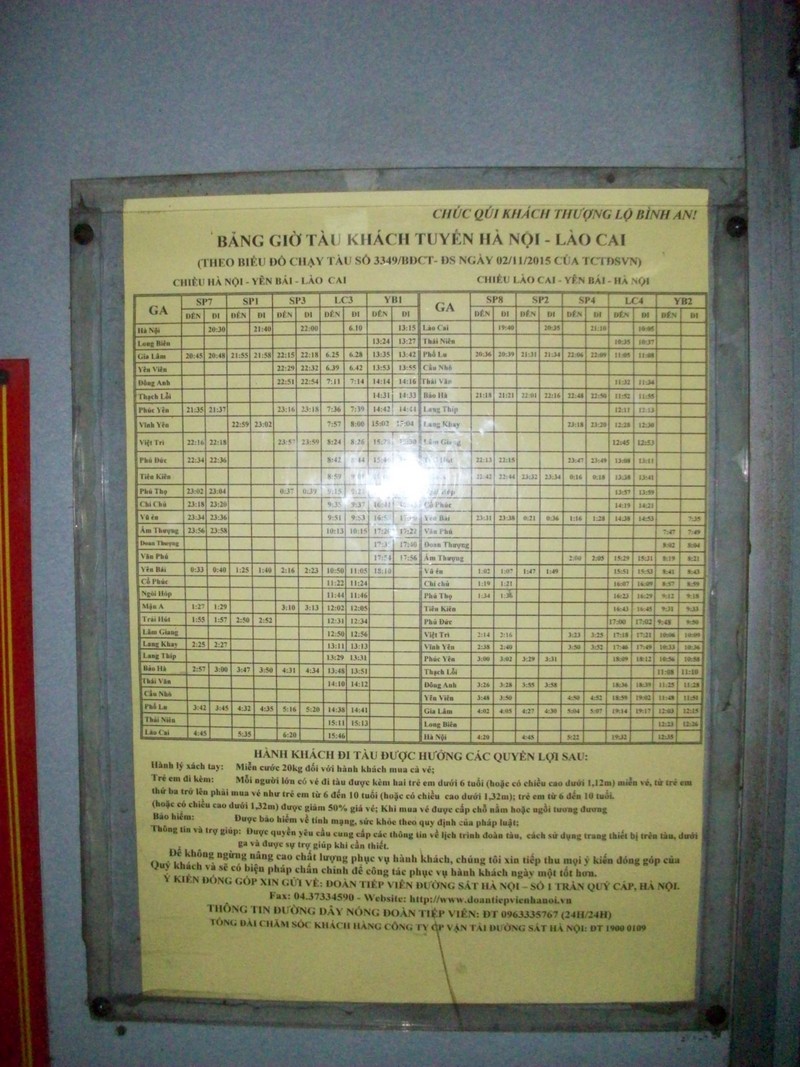 CHÚC QÚI KHÁCH THƯỢNG LỘ BÌNH AN!
BẢNG GIỜ TÀU KHÁCH TUYẾN HÀ NỘI - LÀO CAI
(THEO BIỂU ĐỒ CHẠY TÀU SỐ 3349/BĐCT- ĐS NGÀY 02/11/2015 CỦA TCTĐSVN)
CHIỀU HÀ NỘI - YÊN BÁI - LÀO CAI CHIỀU LÀO CAI - YÊN BÁI - HÀ NỘI
GA SP7 SP1 SP3 LC3 YB1 GA SP8 SP2 SP4 LC4 YB2
ĐẾN ĐI ĐẾN ĐI ĐẾN ĐI ĐẾN ĐI ĐẾN ĐI ĐẾN ĐI ĐẾN ĐI ĐẾN ĐI ĐẾN ĐI ĐẾN ĐI
Hà Nội 20:30 21:40 22:00 6.10 13:15 Lào Cai 19:40 20:35 21:10 10:05
Long Biên 13:24 13:27 Thái Niên 10:35 10:37
Gia Lâm 20:45 20:48 21:55 21:58 22:15 22:18 6.25 6.28 13:35 13:42 Phố Lu 20:36 20:39 21:31 21:34 22:06 22:09 11:05 11:08
Yên Viên 22:29 22:32 6.39 6.42 13:53 13:55 Cầu Nhò
Đông Anh 22:51 22:54 7:11 7:14 14:14 14:16 Thái Văn 11:32 11:34
Thạch Lỗi 14:31 14:33 Bảo Hà 21:18 21:21 22:01 22:16 22:48 22:50 11:52 11:55
Phúc Yên 21:35 21:37 23:16 23:18 7:36 7:39 14:42 14:44 Lang Thíp 12:11 12:13
Vĩnh Yên 22:59 23:02 7:57 8:00 15:02 Lang Khay 23:18 23:20 12:28 12:30
Việt Trì 22:16 22:18 23:57 23:59 8:24 8:26 Lâm Giang 12:45 12:53
Phủ Đức 22:34 22:36 8:42 22:13 22:15 23:47 23:49 13:08 13:11
Tiên Kiên 8:59 22:42 22:44 23:32 23:34 0:16 0:18 13:38 13:41
Phú Thọ 23:02 23:04 0:37 0:39 13:57 13:59
Chí Chủ 23:18 23:20 9:35 9:37 Cổ Phúc 14:19 14:21
Vũ ẻn 23:34 23:36 9:51 9:53 Yên Bái 23:31 23:38 0:21 0:36 1:16 1:28 14:38 14:53 7:35
Ấm Thượng 23:56 23:58 10:13 10:15 Văn Phú 7:47 7:49
Đoan Thượng 17:40 Đoan Thượng 8:02 8:04
Văn Phú 17:54 17:56 Ấm Thượng 2:00 2:05 15:29 15:31 8:19 8:21
Yên Bái 0:33 0:40 1:25 1:40 2:16 2:23 10:50 11:05 18:10 Vũ ẻn 1:02 1:07 1:47 1:49 15:51 15:53 8:41 8:43
Cổ Phúc 11:22 11:24 Chí chủ 1:19 1:21 16:07 16:09 8:57 8:59
Ngòi Hóp 11:44 11:46 Phú Thọ 1:34 1:36 16:23 16:29 9:12 9:18
Mậu A 1:27 1:29 3:10 3:13 12:02 12:05 Tiên Kiên 16:43 16:45 9:31 9:33
Trái Hút 1:55 1:57 2:50 2:52 12:31 12:34 Phủ Đức 17:00 17:02 9:48 9:50
Lâm Giang 12:50 12:56 Việt Trì 2:14 2:16 3:23 3:25 17:18 17:21 10:06 10:09
Lang Khay 2:25 2:27 13:11 13:13 Vĩnh Yên 2:38 2:40 3:50 3:52 17:46 17:49 10:33 10:36
Lang Thíp 13:29 13:31 Phúc Yên 3:00 3:02 3:29 3:31 18:09 18:12 10:56 10:58
Bảo Hà 2:57 3:00 3:47 3:50 4:31 4:34 13:48 13:51 Thạch Lỗi 11:08 11:10
Thái Văn 14:10 14:12 Đông Anh 3:26 3:28 3:55 3:58 18:36 18:39 11:25 11:28
Cầu Nhò Yên Viên 3:48 3:50 4:50 4:52 18:59 19:02 11:48 11:51
Phố Lu 3:42 3:45 4:32 4:35 5:16 5:20 14:38 14:41 Gia Lâm 4:02 4:05 4:27 4:30 5:04 5:07 19:14 19:17 12:03 12:15
Thái Niên 15:11 15:13 Long Biên 12:23 12:26
Lào Cai 4:45 5:35 6:20 15:46 Hà Nội 4:20 4:45 5:22 19:32 12:35
HÀNH KHÁCH ĐI TÀU ĐƯỢC HƯỞNG CÁC QUYỀN LỢI SAU:
Hành lý xách tay: Miễn cước 20kg đối với hành khách mua cả vé;
Trẻ em đi kèm: Mỗi người lớn có vé đi tàu được kèm hai trẻ em dưới 6 tuổi (hoặc có chiều cao dưới 1,12m) miễn vé, từ trẻ em
thứ ba trở lên phải mua vé như trẻ em từ 6 đến 10 tuổi (hoặc có chiều cao dưới 1,32m); trẻ em từ 6 đến 10 tuổi.
(hoặc có chiều cao dưới 1,32m) được giảm 50% giá vé; Khi mua vé được cấp chỗ nằm hoặc ngồi tương đương
Bảo hiểm: Được bảo hiểm về tính mạng, sức khỏe theo quy định của pháp luật;
Thông tin và trợ giúp: Được quyền yêu cầu cung cấp các thông tin về lịch trình đoàn tàu, cách sử dụng trang thiết bị trên tàu, dưới
ga và được sự trợ giúp khi cần thiết.
Để không ngừng nâng cao chất lượng phục vụ hành khách, chúng tôi xin tiếp thu mọi ý kiến đóng góp của
Quý khách và sẽ có biện pháp chấn chỉnh để công tác phục vụ hành khách ngày một tốt hơn.
Ý KIẾN ĐÓNG GÓP XIN GỬI VỀ: ĐOÀN TIẾP VIÊN ĐƯỜNG SẮT HÀ NỘI – SỐ 1 TRẦN QUÝ CÁP, HÀ NỘI.
Fax: 04.37334590 - Website: http://www.doantiepvienhanoi.vn
THÔNG TIN ĐƯỜNG DÂY NÓNG ĐOÀN TIẾP VIÊN: ĐT 0963335767 (24H/24H)
TỔNG ĐÀI CHĂM SÓC KHÁCH HÀNG CÔNG TY CP VẬN TẢI ĐƯỜNG SẮT HÀ NỘI: ĐT 1900 0109